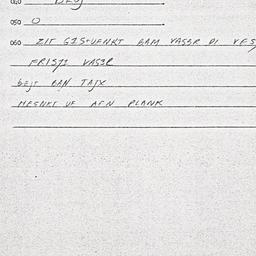 050 O
060 ZIT GISTUFNKT BAM VASSR DI VFS
FRISJI VASSR
BEJT BAN TAJX
MESNKT UF AFN PLANK